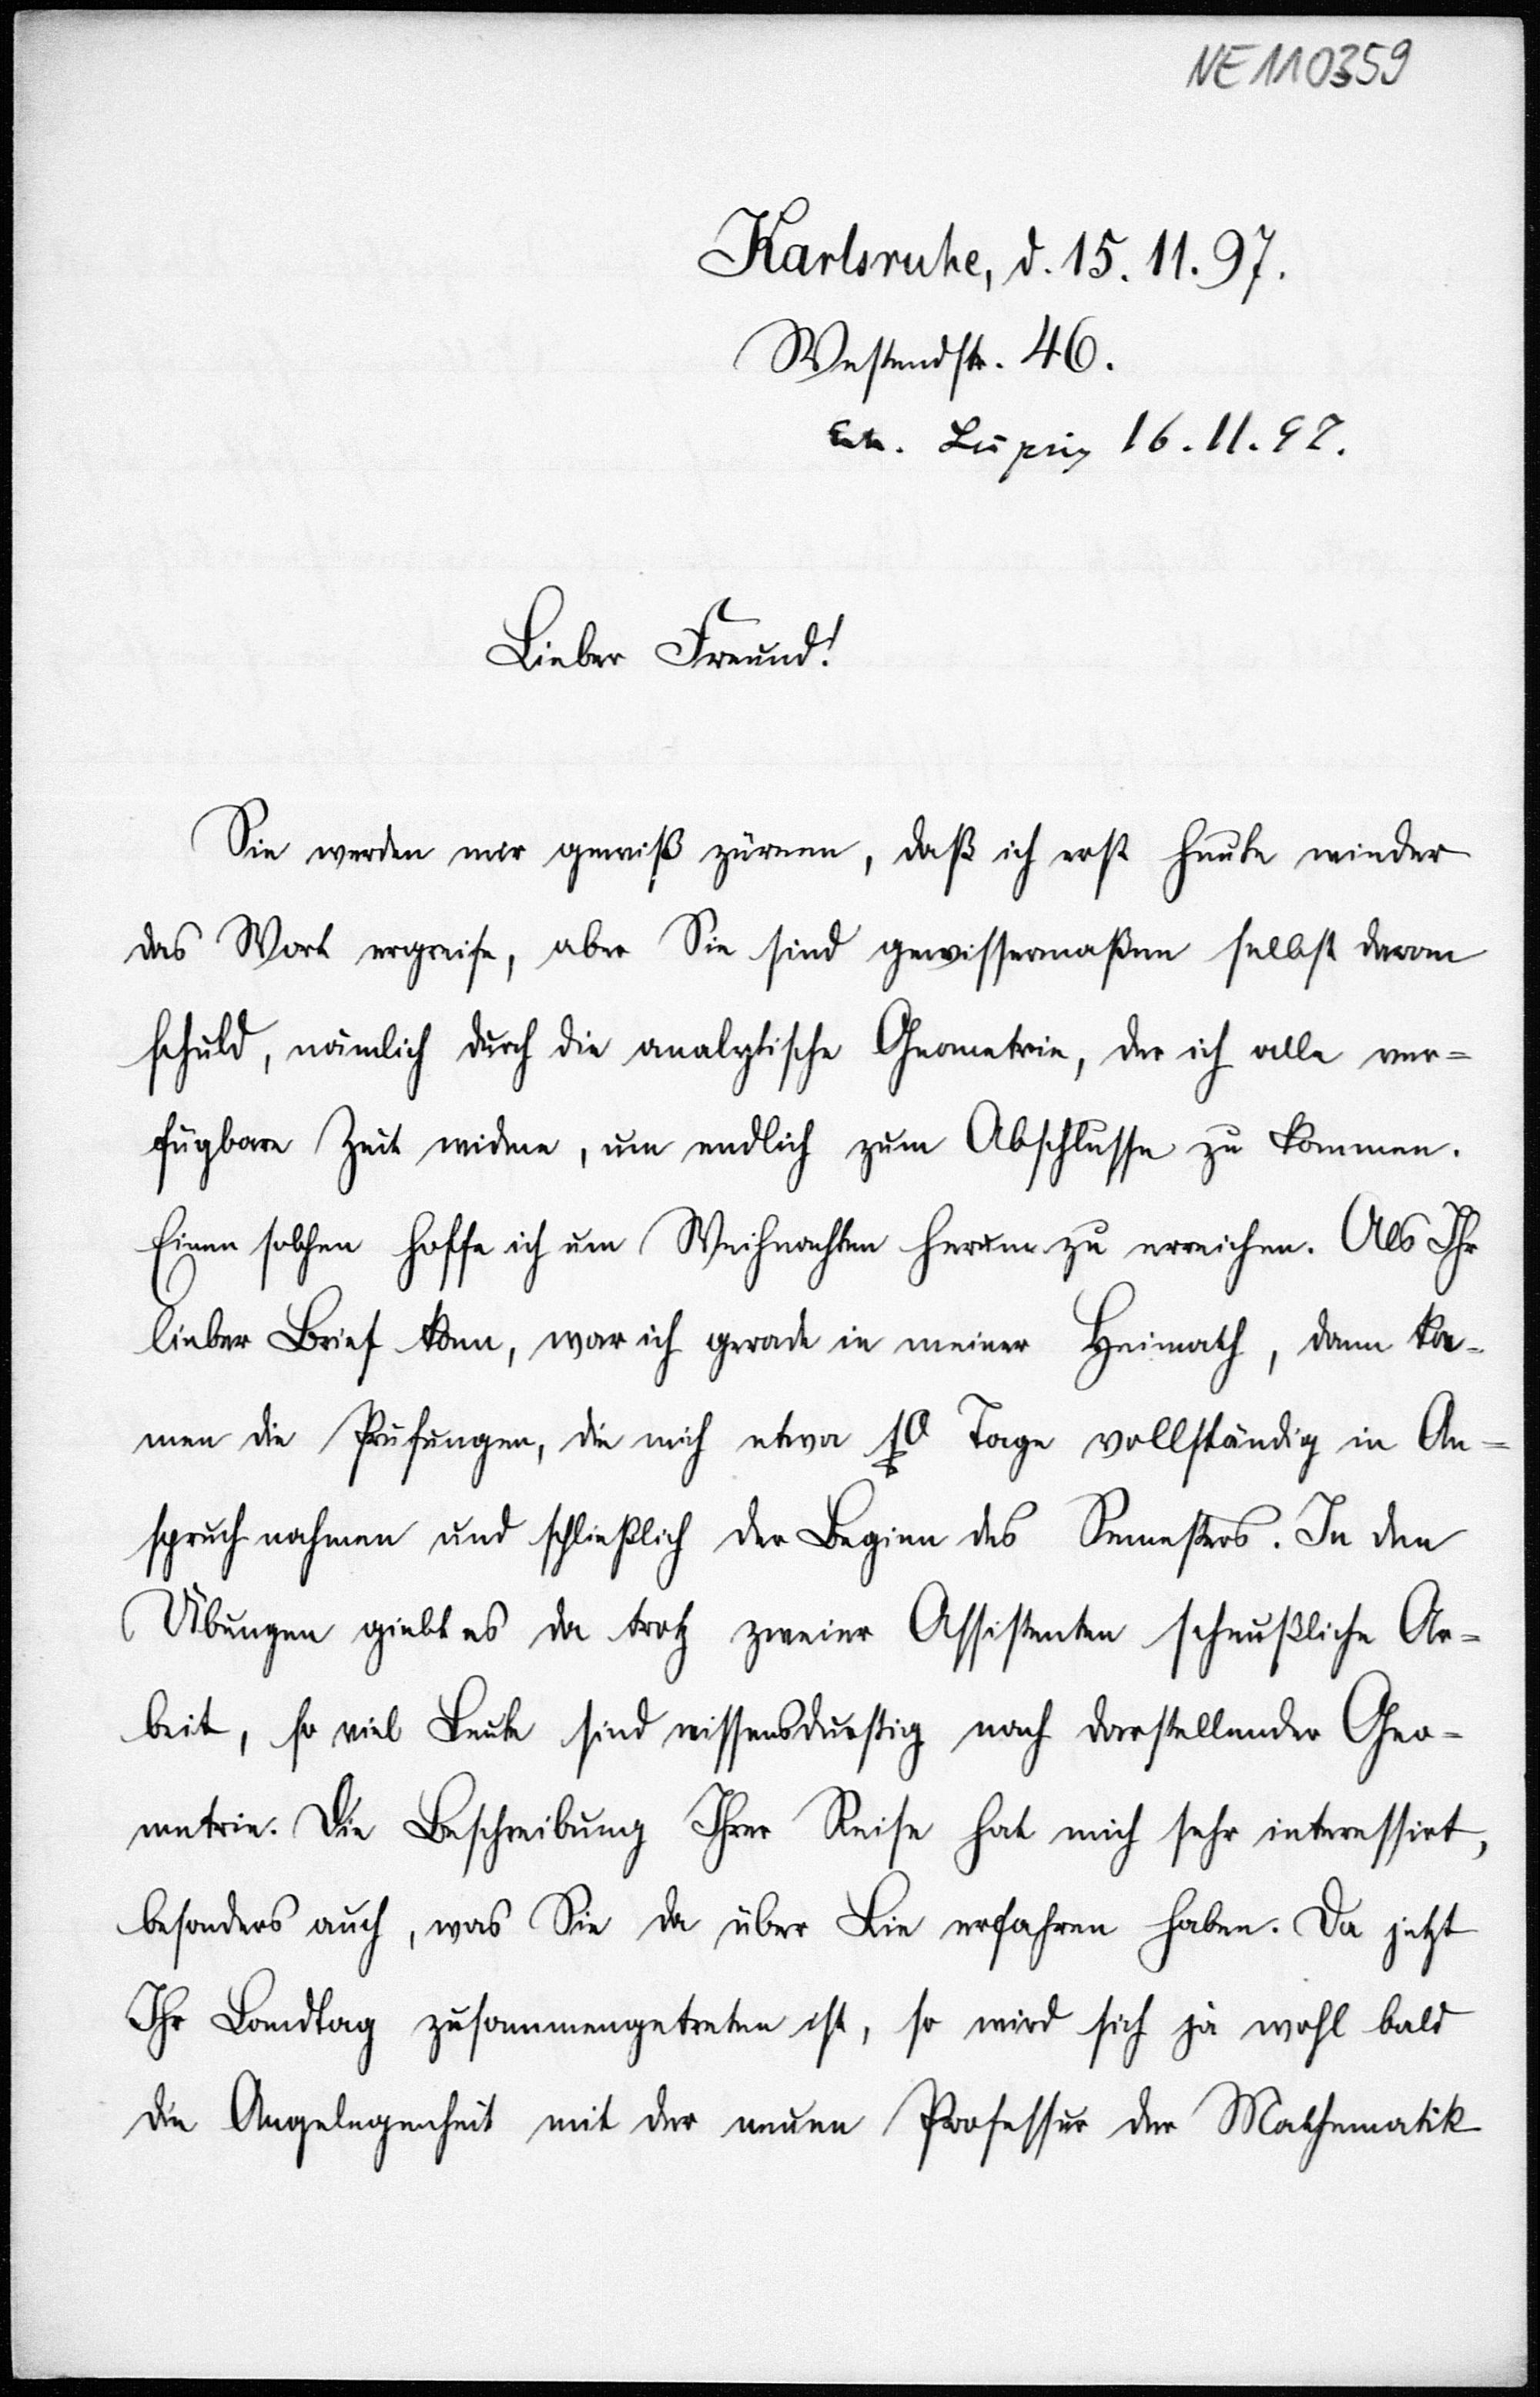 NE110359
Karlsruhe, d. 15. 11. 97.
Westendstr. 46.
Erh. Leipzig 16.11.97.
Lieber Freund!
Sie werden mir gewiß zürnen, daß ich erst heute wieder
das Wort ergreife, aber Sie sind gewissermaßen selbst daran
schuld, nämlich durch die analytische Geometrie, der ich alle ver=
fügbare Zeit widme, um endlich zum Abschlusse zu kommen.
Einen solchen hoffe ich um Weihnachten herum zu erreichen. Als Ihr
lieber Brief kam, war ich gerade in meiner Heimath, dann ka=
men die Prüfungen, die mich etwa 10 Tage vollständig in An=
spruch nahmen und schließlich der Beginn des Semesters. In den
Übungen giebt es da trotz zweier Assistenten scheußliche Ar=
beit, so viel Leute sind wissensdurstig nach darstellender Geo=
metrie. Die Beschreibung Ihrer Reise hat mich sehr interessirt,
besonders auch, was Sie da über Lie erfahren haben. Da jetzt
Ihr Landtag zusammengetreten ist, so wird sich ja wohl bald
die Angelegenheit mit der neuen Professur der Mathematik